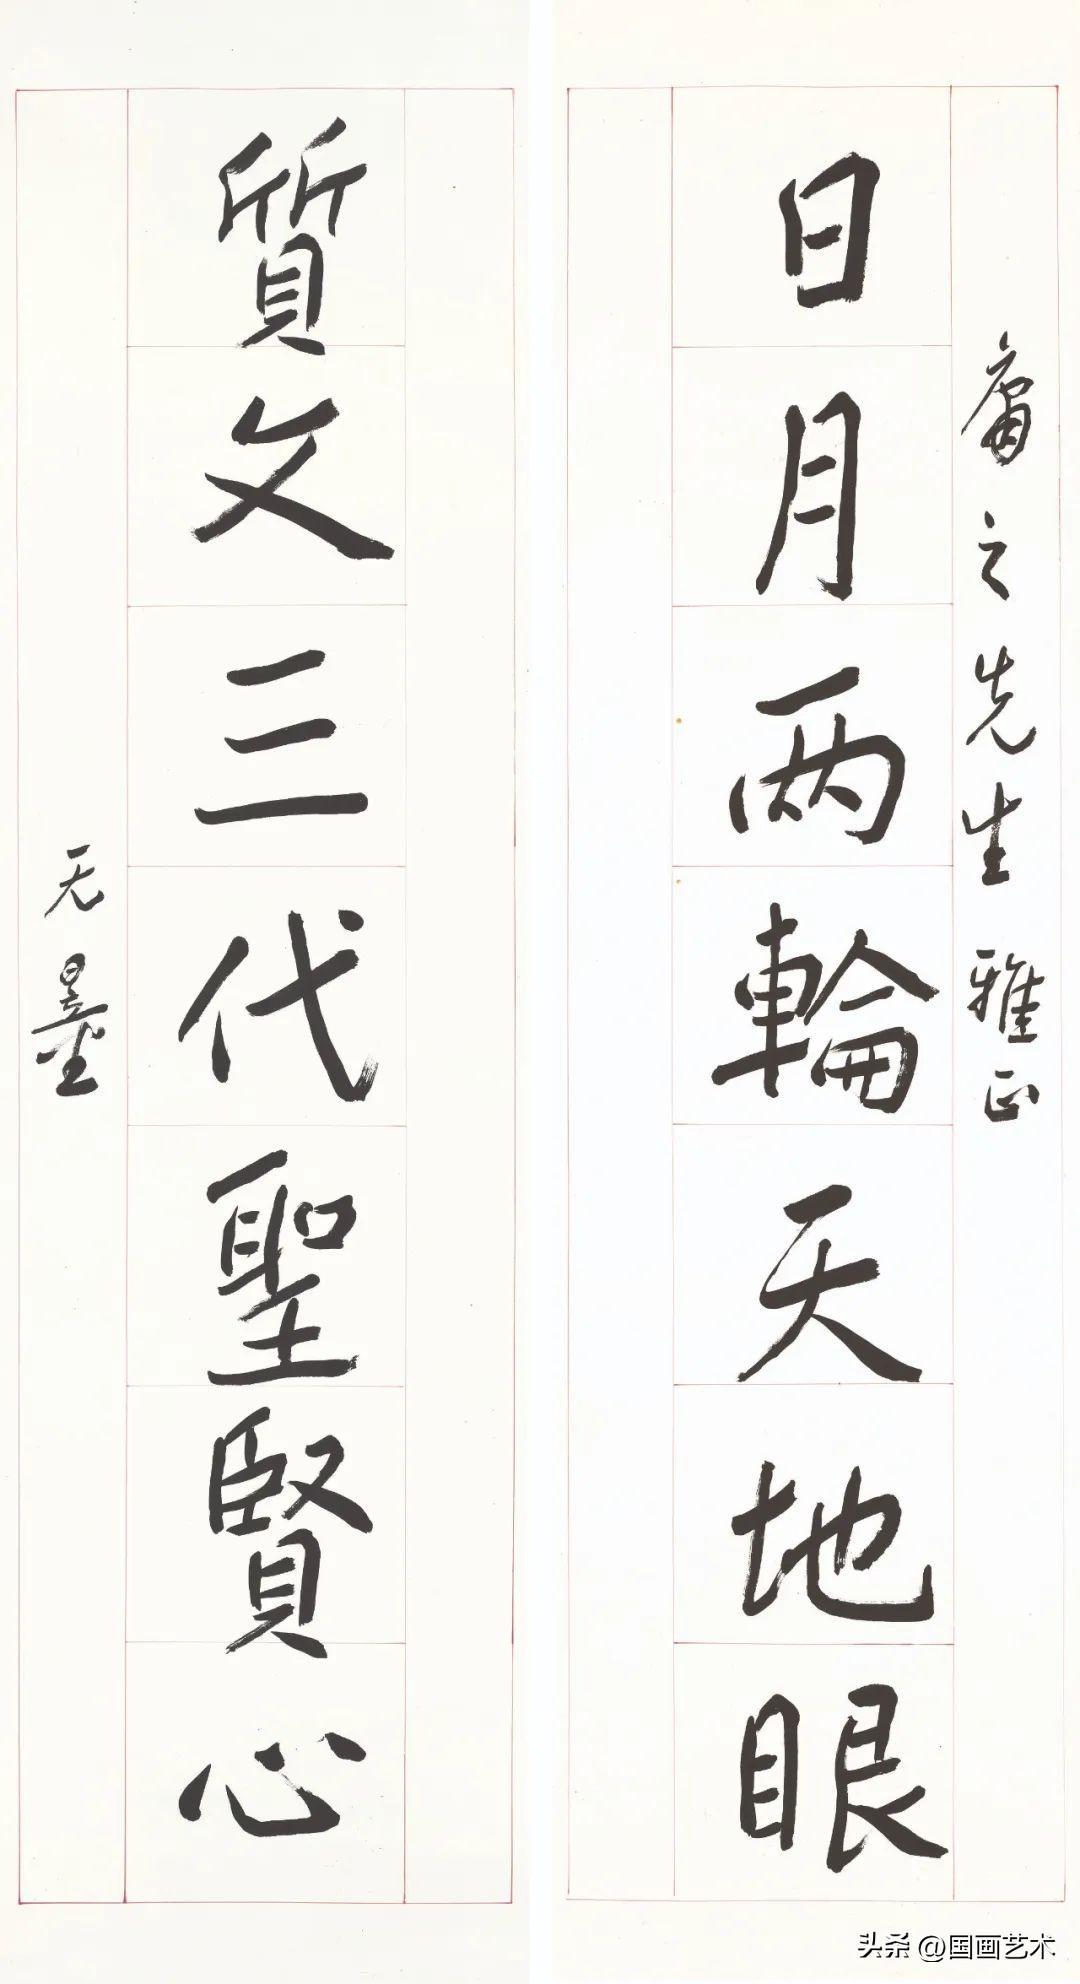 庸之先生雅正
日月两輪天地眼
質文三代聖賢心
无量
头条 @国画艺术